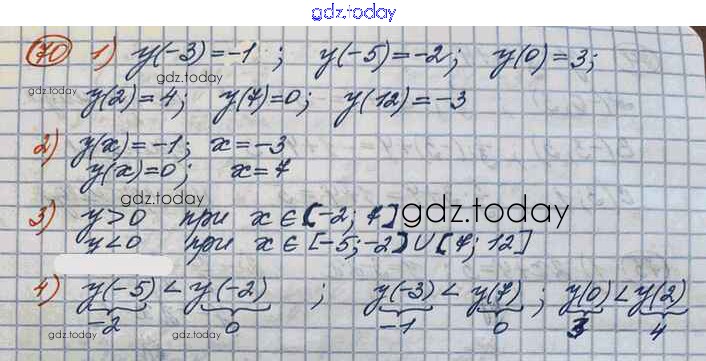 gdz.today
70 1) y(-3)=-1; y(-5)=-2; y(0)=3;
gdz.today
gdz.today
y(2)=4; y(7)=0; y(12)=-3
gdz.today
2) y(x)=-1; x=-3
y(x)=0; x=7
gdz.today
3) y>0 при x∈[-2; 7]
gdz.today
y<0 при x∈[-5;-2]∪[7; 12]
4) y(-5)<y(-2) ; y(-3)<y(7) ; y(0)<y(2)
-2 0 -1 0 3 4
gdz.today
gdz.today
gdz.today